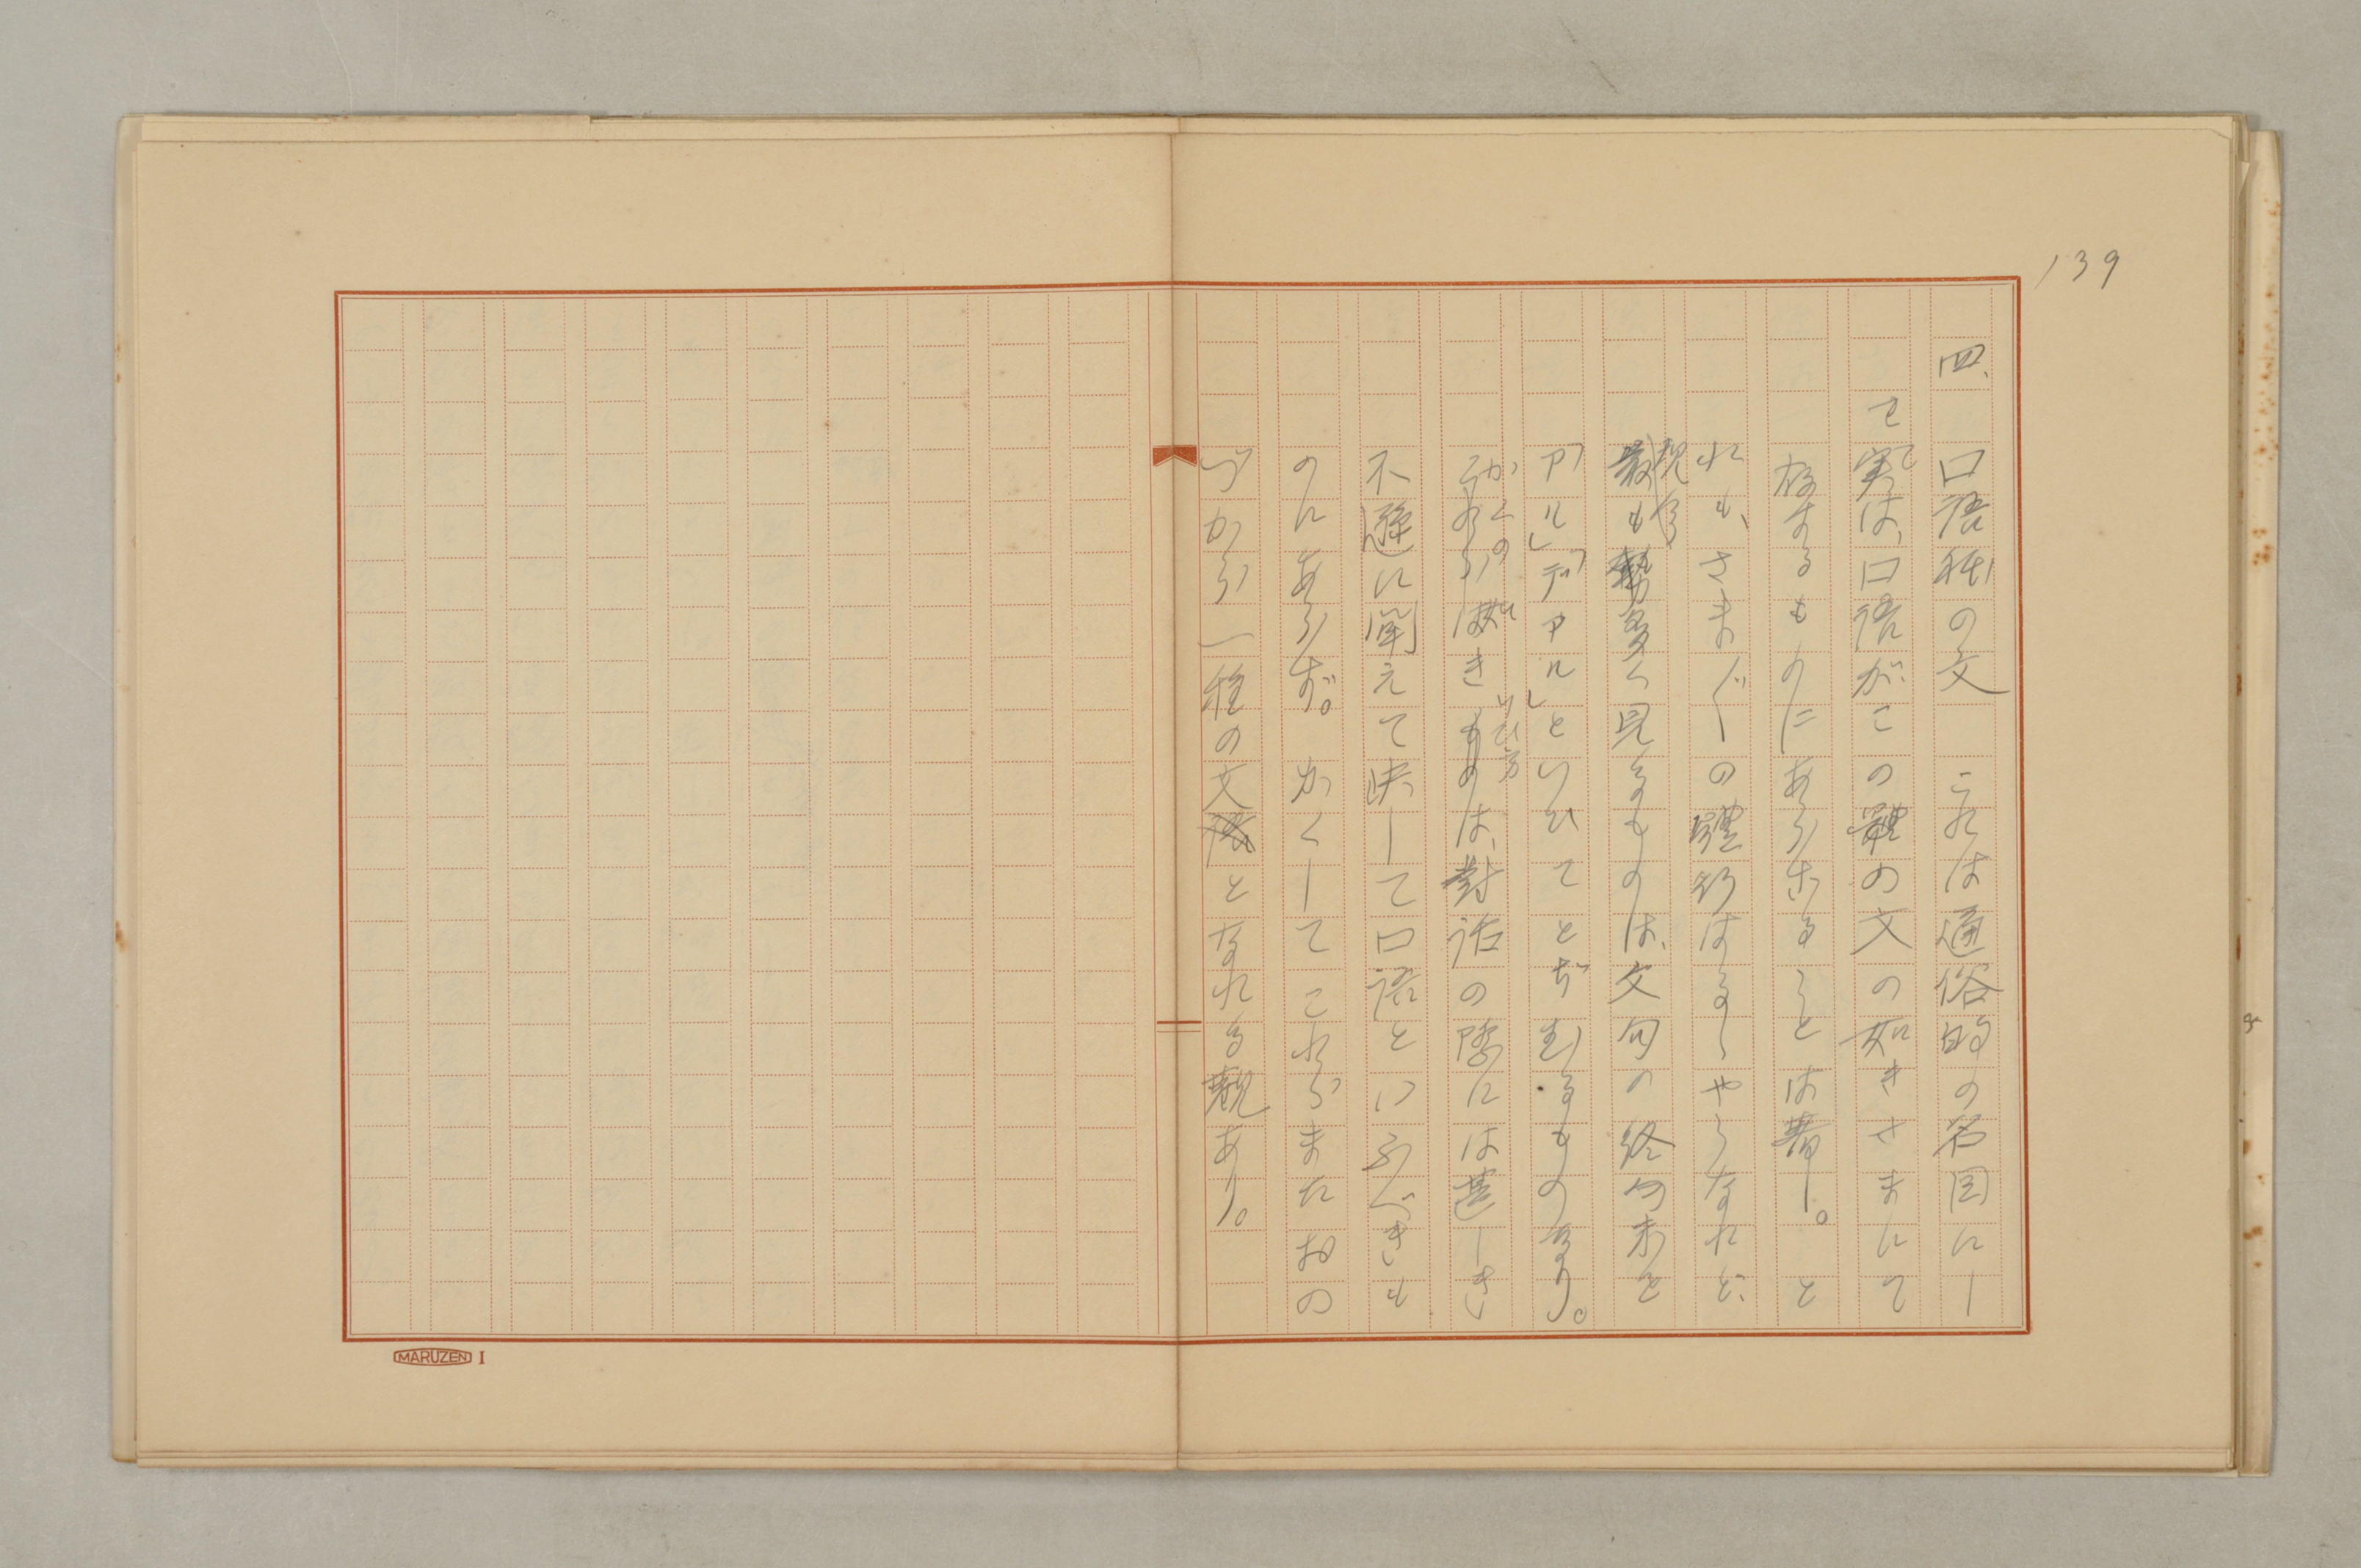 139
四、口語体の文　これは通俗的の名目にし
て実は、口語がこの體の文の如きさまにて
存するものにあらざることは著し。と
れも、さま〴〵の體行はるゝやうなれど、
親しく多く見るものは、文句の終の末を
「アル」「デアル」といひてとぢむるものなり。
かくの如きいひ方は、對話の際には甚しき
不遜に聞えて決して口語といふべきも
のにあらず。かくしてこれらまたおの
づから一種の文となれる観あり。
MARUZEN I